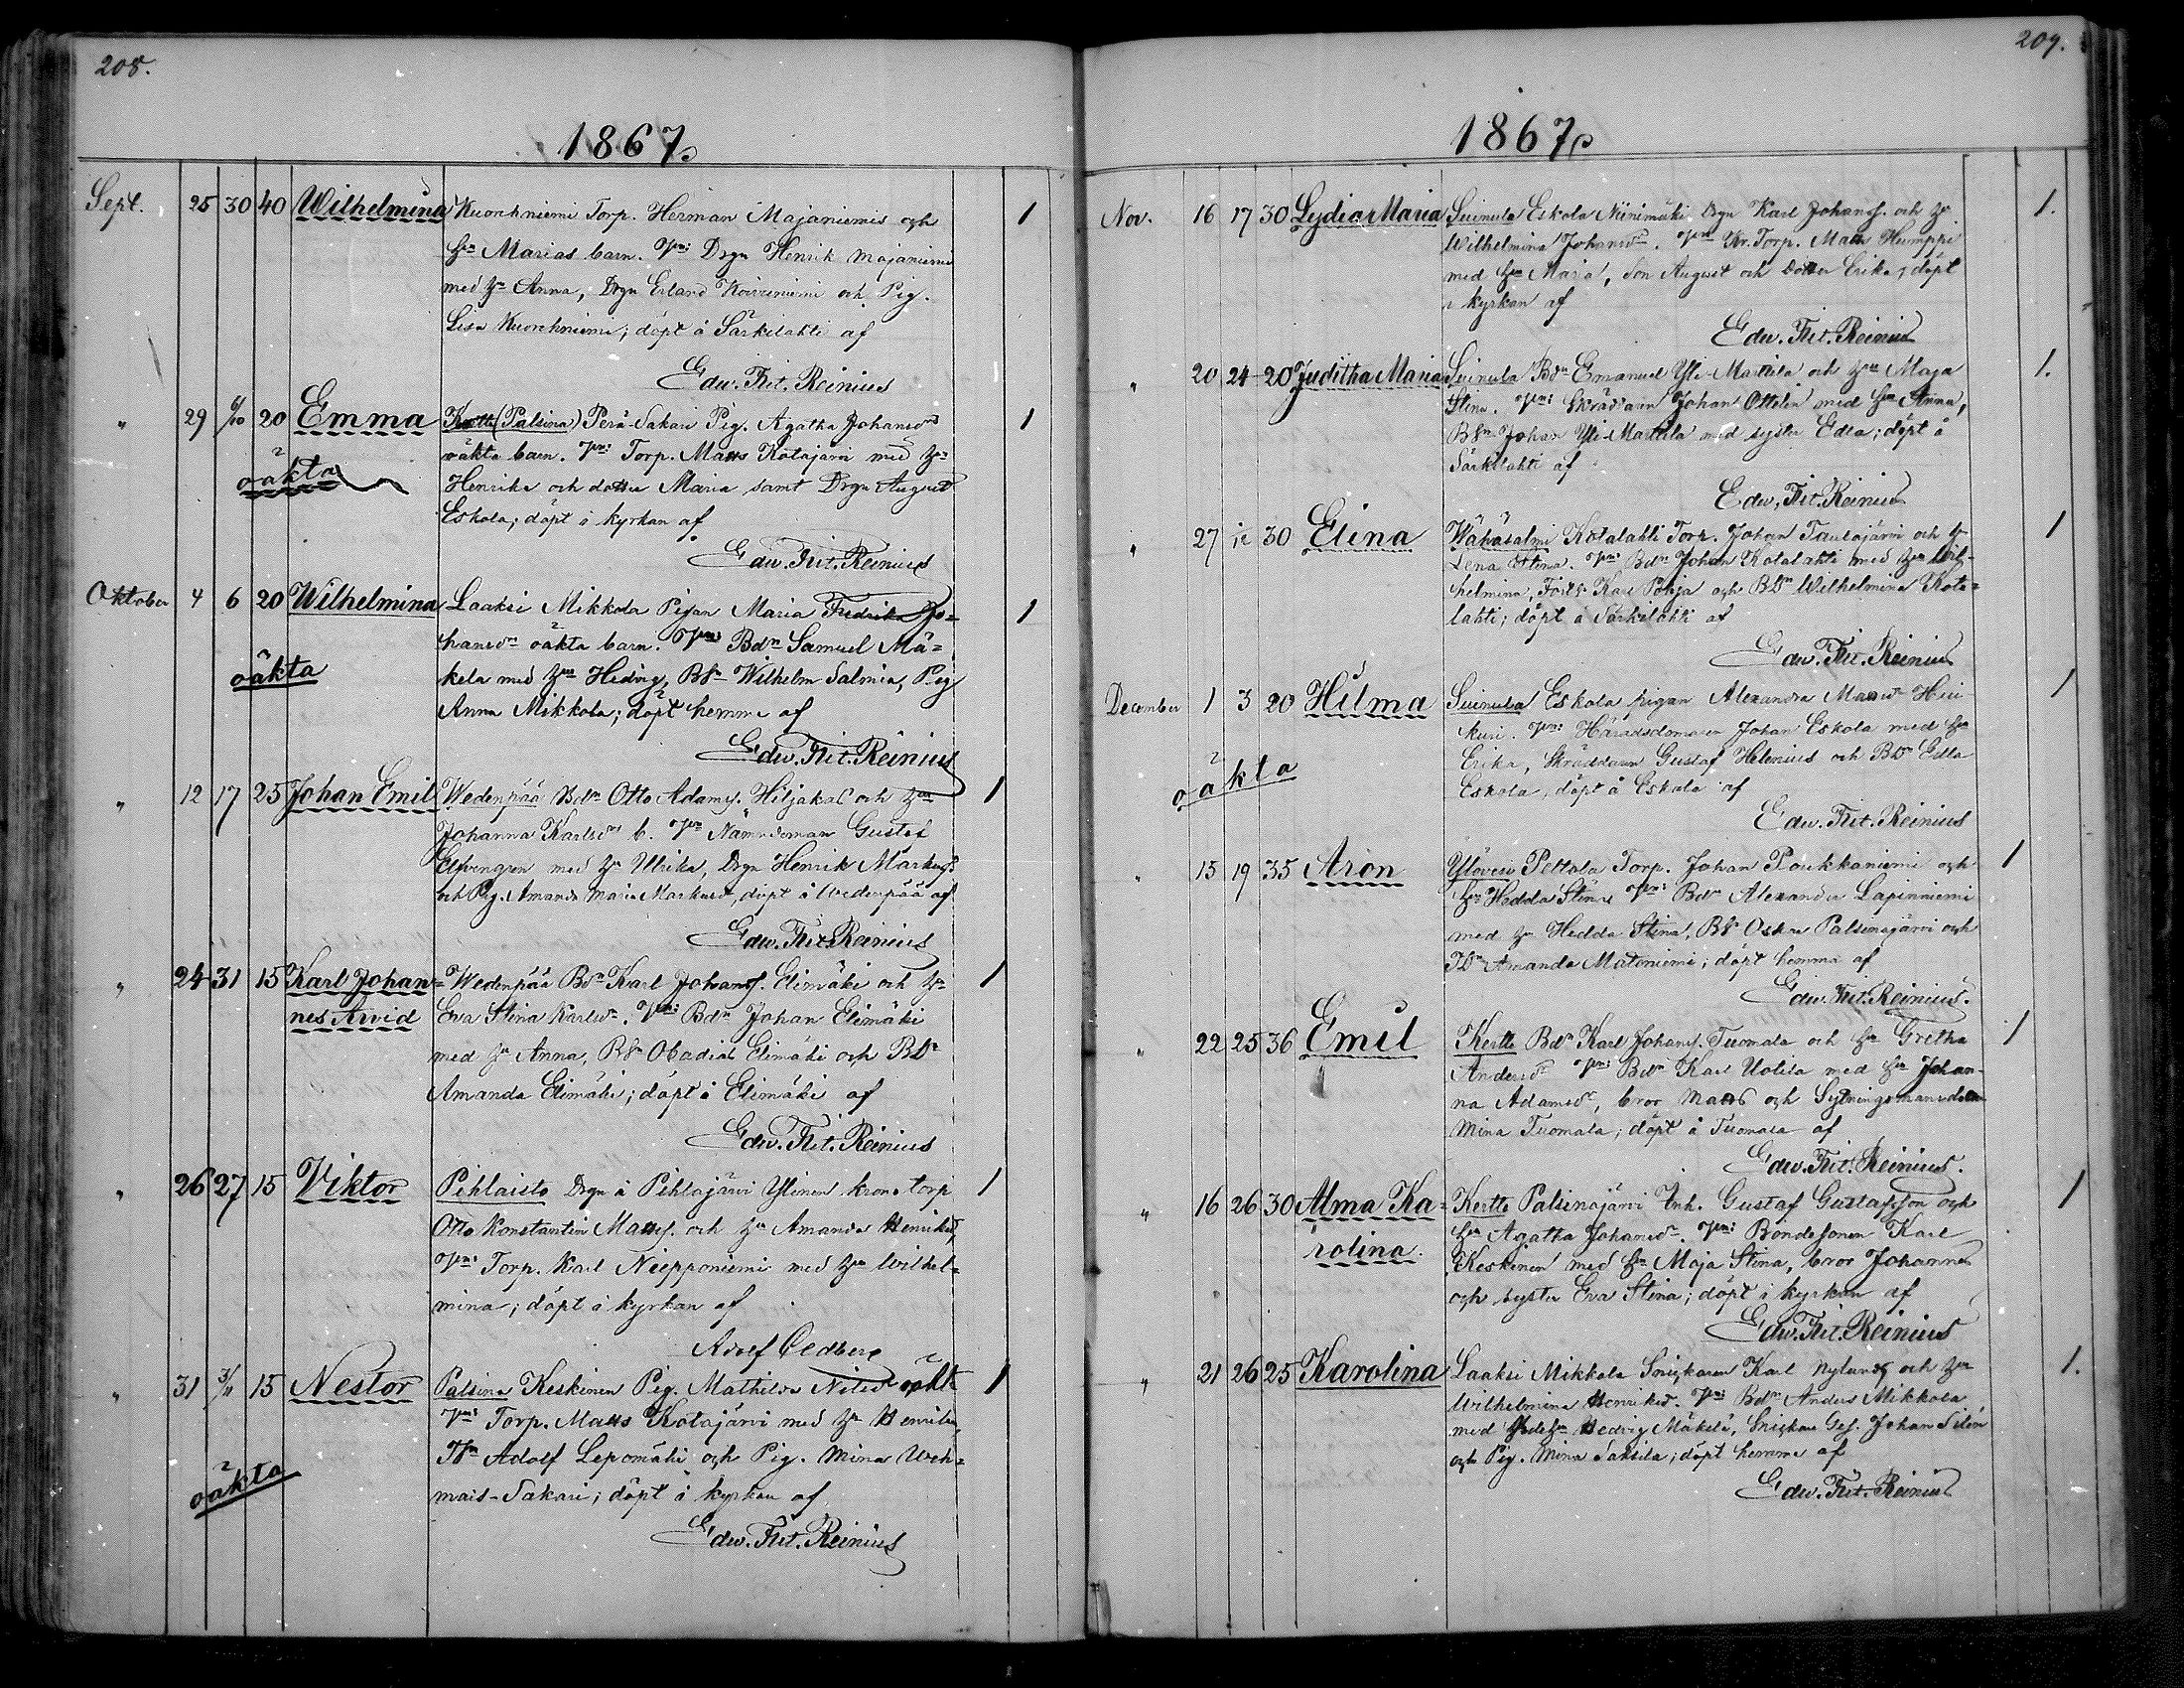 208.
1867.
Sept. 25 30 40 Wilhelmina Kuorehniemi Torp. Herman Majaniemis och
Hu Marias barn. Vpn: Drgn Henrik Majaniemi
med Hu Anna, Drgn Erland Koivuniemi och Pig.
Lisa Kuorehniemi; döpt å Särkilahti af
Edw. Frit. Reinius
" 29 6/10 20 Emma Kertte (Palsina) Perä-Sakari Pig. Agatha Johansdrs
oäkta barn. Vpn: Torp. Matts Kotajärvi med Hu
oäkta Henrika och dotter Maria samt Drgn August
Eskola; döpt i kyrkan af
Edw. Frit. Reinius
Oktober 4 6 20 Wilhelmina Laaksi Mikkola Pigan Maria Fredrika Jo-
hansdrs oäkta barn. Vpn: Bdn Samuel Mä-
oäkta kelä med Hu Hedvig, BSn Wilhelm Salmia, Pig
Anna Mikkola; döpt hemma af
Edw. Frit. Reinius
" 12 17 25 Johan Emil Wedenpää Bdn Otto Adamss. Hiljakas och Hu
Johanna Karlsdrs b. Vpn Nämndeman Gustaf
Elfvengren med Hu Ulrika, Drgn Henrik Markuss.
och Pig. Amanda Maria Markusdr, döpt å Wedenpää af
Edw. Frit. Reinius
" 24 31 15 Karl Johan- Wedenpää Bdn Karl Johanss. Elimäki och Hu
nes Arvid Eva Stina Karlsdr. Vpn: Bdn Johan Elimäki
med Hu Anna, BSn Obadias Elimäki och BDr
Amanda Elimäki; döpt å Elimäki af
Edw. Frit. Reinius
" 26 27 15 Viktor Pihlaisto Drgn å Pihlajärvi Ylinen krono torp
Otto Konstantin Matts. och Hu Amanda Henriksd,
Vpn: Torp. Karl Niepponiemi med Hu Wilhel-
mina; döpt i kyrkan af
Adolf Cedberg
" 31 3/11 15 Nestor Palsina Keskinen Pig. Mathilda Nilsdr oäkt.
Vpn: Torp. Matts Kotajärvi med Hu Henrika,
TSn Adolf Lepomäki och Pig. Mina Weh-
oäkta mais-Sakari; döpt i kyrkan af
Edw. Frit. Reinius
209.
1867.
Nov. 16 17 30 Lydia Maria Suinula Eskola Niinimäki Drgn Karl Johanss. och Hu
Wilhelmina Johansdr. Vpn Kr. Torp. Matts Humppi
med Hu Maja, Son August och Dotter Erika; döpt
i kyrkan af
Edw. Frit. Reinius
" 20 24 20 Juditha Maria Suinula Bdn Emanuel Yli-Marttila och Hu Maja
Stina. Vpn: Skräddaren Johan Ottelin med Hu Anna,
BSn Johan Yli-Marttila med syster Edla; döpt å
Särkilahti af
Edw. Frit. Reinius
" 27 1/12 30 Elina Wähäsalmi Kotalahti Torp. Johan Taulajärvi och Hu
Lena Stina. Vpn: Bdn Johan Kotalahti med Hu Wil-
helmina, Karl Pohja och BDr Wilhelmina Kota-
lahti; döpt å Särkilahti af
Edw. Frit. Reinius
December 1 3 20 Hilma Suinula Eskola pigan Alexandra Mattsdr Hei
kuri. Vpn: Häradsdomaren Johan Eskola med Hu
oäkta Erika, Skräddaren Gustaf Helenius och BDr Edla
Eskola, döpt å Eskola af
Edw. Frit. Reinius
" 15 19 35 Aron Ylövesi Pettola Torp. Johan Poukkaniemi och
Hu Hedda Stina Vpn: Bdn Alexander Lapinniemi
med Hu Hedda Stina, BSn Oskar Palsinajärvi och
TDr Amanda Mateniemi; döpt hemma af
Edw. Frit. Reinius.
" 22 25 36 Emil Kertte Bdn Karl Johanss. Tuomala och Hu Gretha
Andersdr Vpn: Bdn Karl Uolila med Hu Johan-
na Adamsdr, bror Matts och Sytningsmansdotter
Mina Tuomala; döpt å Tuomala af
Edw. Frit. Reinius.
" 16 26 30 Alma Ka- Kertte Palsinajärvi Inh. Gustaf Gustafsson och
rolina. Hu Agatha Johansdr. Vpn: Bondesonen Karl
Keskinen med Hu Maja Stina, bror Johannes
och syster Eva Stina; döpt i kyrkan af
Edw. Frit. Reinius
" 21 26 25 Karolina Laaksi Mikkola Snickaren Karl Nylund och Hu
Wilhelmina Henriksd. Vpn: Bdn Anders Mikkola
med Hedvig Mäkelä, Snickare Ges. Johan Silén
och Pig. Mina Saksila; döpt hemma af
Edw. Frit. Reinius